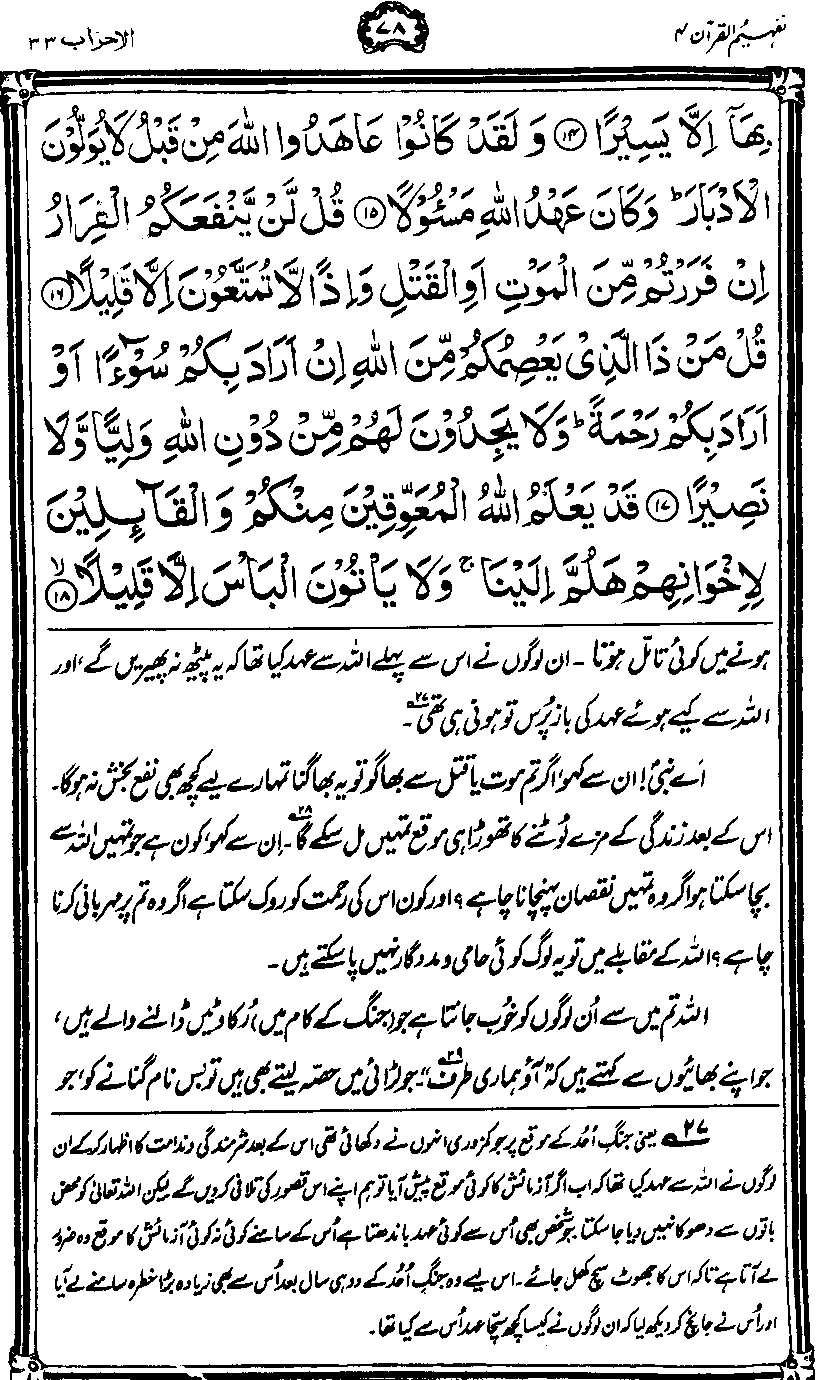 تفہیم القرآن ۴
۷۸
الاحزاب ۳۳
بِهَآ اِلَّا يَسِيْرًا ﴿۱۴﴾ وَ لَقَدْ كَانُوْا عَاهَدُوا اللّٰهَ مِنْ قَبْلُ لَا يُوَلُّوْنَ
الْاَدْبَارَ ؕ وَ كَانَ عَهْدُ اللّٰهِ مَسْـُٔوْلًا ﴿۱۵﴾ قُلْ لَّنْ يَّنْفَعَكُمُ الْفِرَارُ
اِنْ فَرَرْتُمْ مِّنَ الْمَوْتِ اَوِ الْقَتْلِ وَ اِذًا لَّا تُمَتَّعُوْنَ اِلَّا قَلِيْلًا ﴿۱۶﴾
قُلْ مَنْ ذَا الَّذِيْ يَعْصِمُكُمْ مِّنَ اللّٰهِ اِنْ اَرَادَ بِكُمْ سُوْٓءًا اَوْ
اَرَادَ بِكُمْ رَحْمَةً ؕ وَ لَا يَجِدُوْنَ لَهُمْ مِّنْ دُوْنِ اللّٰهِ وَلِيًّا وَّ لَا
نَصِيْرًا ﴿۱۷﴾ قَدْ يَعْلَمُ اللّٰهُ الْمُعَوِّقِيْنَ مِنْكُمْ وَ الْقَآىِٕلِيْنَ
لِاِخْوَانِهِمْ هَلُمَّ اِلَيْنَا ۚ وَ لَا يَاْتُوْنَ الْبَاْسَ اِلَّا قَلِيْلًا ۙ﴿۱۸﴾
ہونے میں کوئی تامّل ہوتا۔ ان لوگوں نے اس سے پہلے اللہ سے عہد کیا تھا کہ یہ پیٹھ نہ پھیریں گے، اور
اللہ سے کیے ہوئے عہد کی باز پُرس تو ہونی ہی تھی۲۷۔
اَے نبیؐ! ان سے کہو، اگر تم موت یا قتل سے بھاگو تو یہ بھاگنا تمہارے لیے کچھ بھی نفع بخش نہ ہوگا۔
اس کے بعد زندگی کے مزے لُوٹنے کا تھوڑا ہی موقع تمہیں مل سکے گا۲۸۔ اِن سے کہو، کون ہے جو تمہیں اللہ سے
بچا سکتا ہو اگر وہ تمہیں نقصان پہنچانا چاہے؟ اور کون اس کی رحمت کو روک سکتا ہے اگر وہ تم پر مہربانی کرنا
چاہے؟ اللہ کے مقابلے میں تو یہ لوگ کوئی حامی و مددگار نہیں پا سکتے ہیں۔
اللہ تم میں سے اُن لوگوں کو خُوب جانتا ہے جو (جنگ کے کام میں) رُکاوٹیں ڈالنے والے ہیں،
جو اپنے بھائیوں سے کہتے ہیں کہ ”آؤ ہماری طرف۲۹“۔ جو لڑائی میں حصّہ لیتے بھی ہیں تو بس نام گنانے کو، جو
۲۷ یعنی جنگِ اُحُد کے موقع پر جو کمزوری انہوں نے دکھائی تھی اس کے بعد شرمندگی و ندامت کا اظہار کر کے ان
لوگوں نے اللہ سے عہد کیا تھا کہ اب اگر آزمائش کا کوئی موقع پیش آیا تو ہم اپنے اس قصور کی تلافی کر دیں گے۔ لیکن اللہ تعالیٰ کو محض
باتوں سے دھوکا نہیں دیا جا سکتا۔ جو شخص بھی اُس سے کوئی عہد باندھتا ہے اُس کے سامنے کوئی نہ کوئی آزمائش کا موقع وہ ضرور
لے آتا ہے تاکہ اس کا جھوٹ سچ کھل جائے۔ اس لیے وہ جنگِ اُحُد کے دو ہی سال بعد اُس سے بھی زیادہ بڑا خطرہ سامنے لے آیا
اور اُس نے جانچ کر دیکھ لیا کہ ان لوگوں نے کیسا کچھ سچّا عہد اُس سے کیا تھا۔